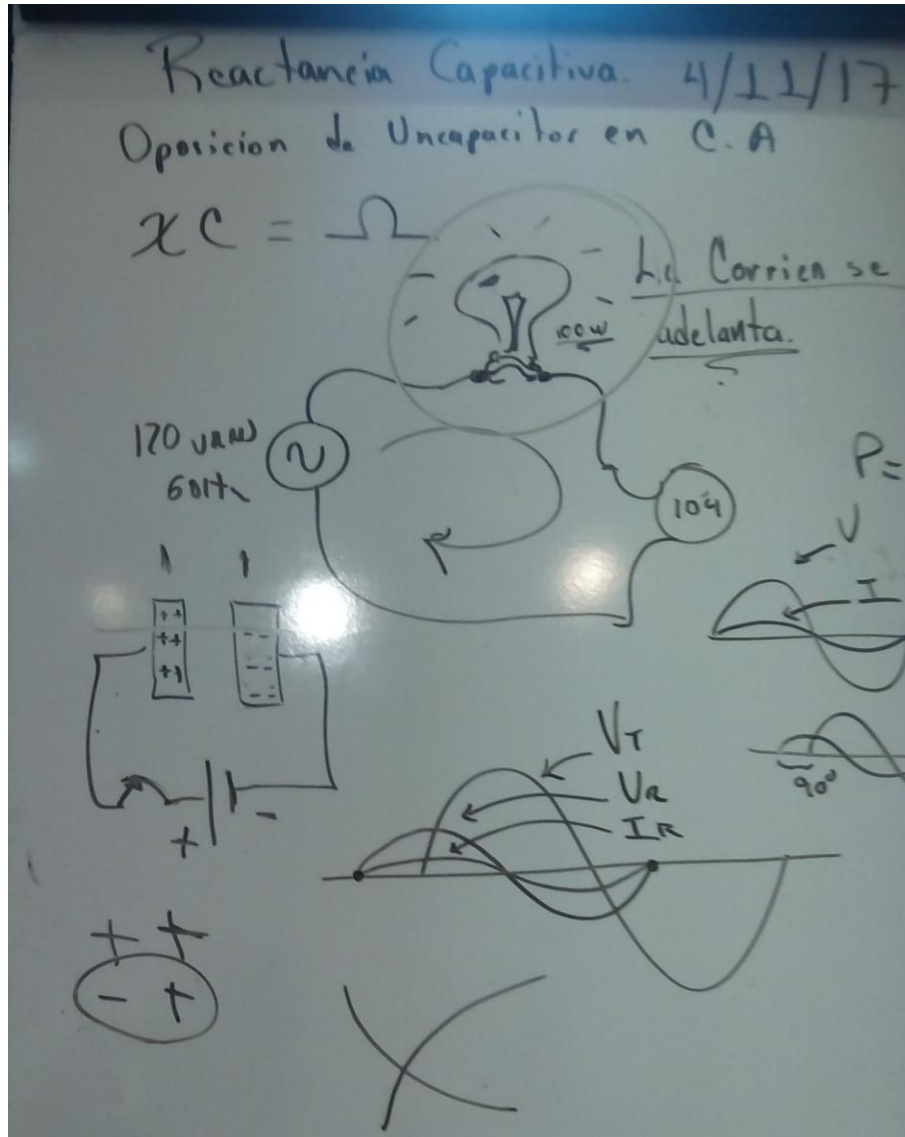 Reactancia Capacitiva. 4/11/17
Oposicion de Uncapacitor en C.A
XC = Ω
La Corrien se
adelanta.
100W
120
60Hz
104
P=
V
I
90°
+ +
+ +
+ +
+ -
VT
VR
IR
+ +
- +